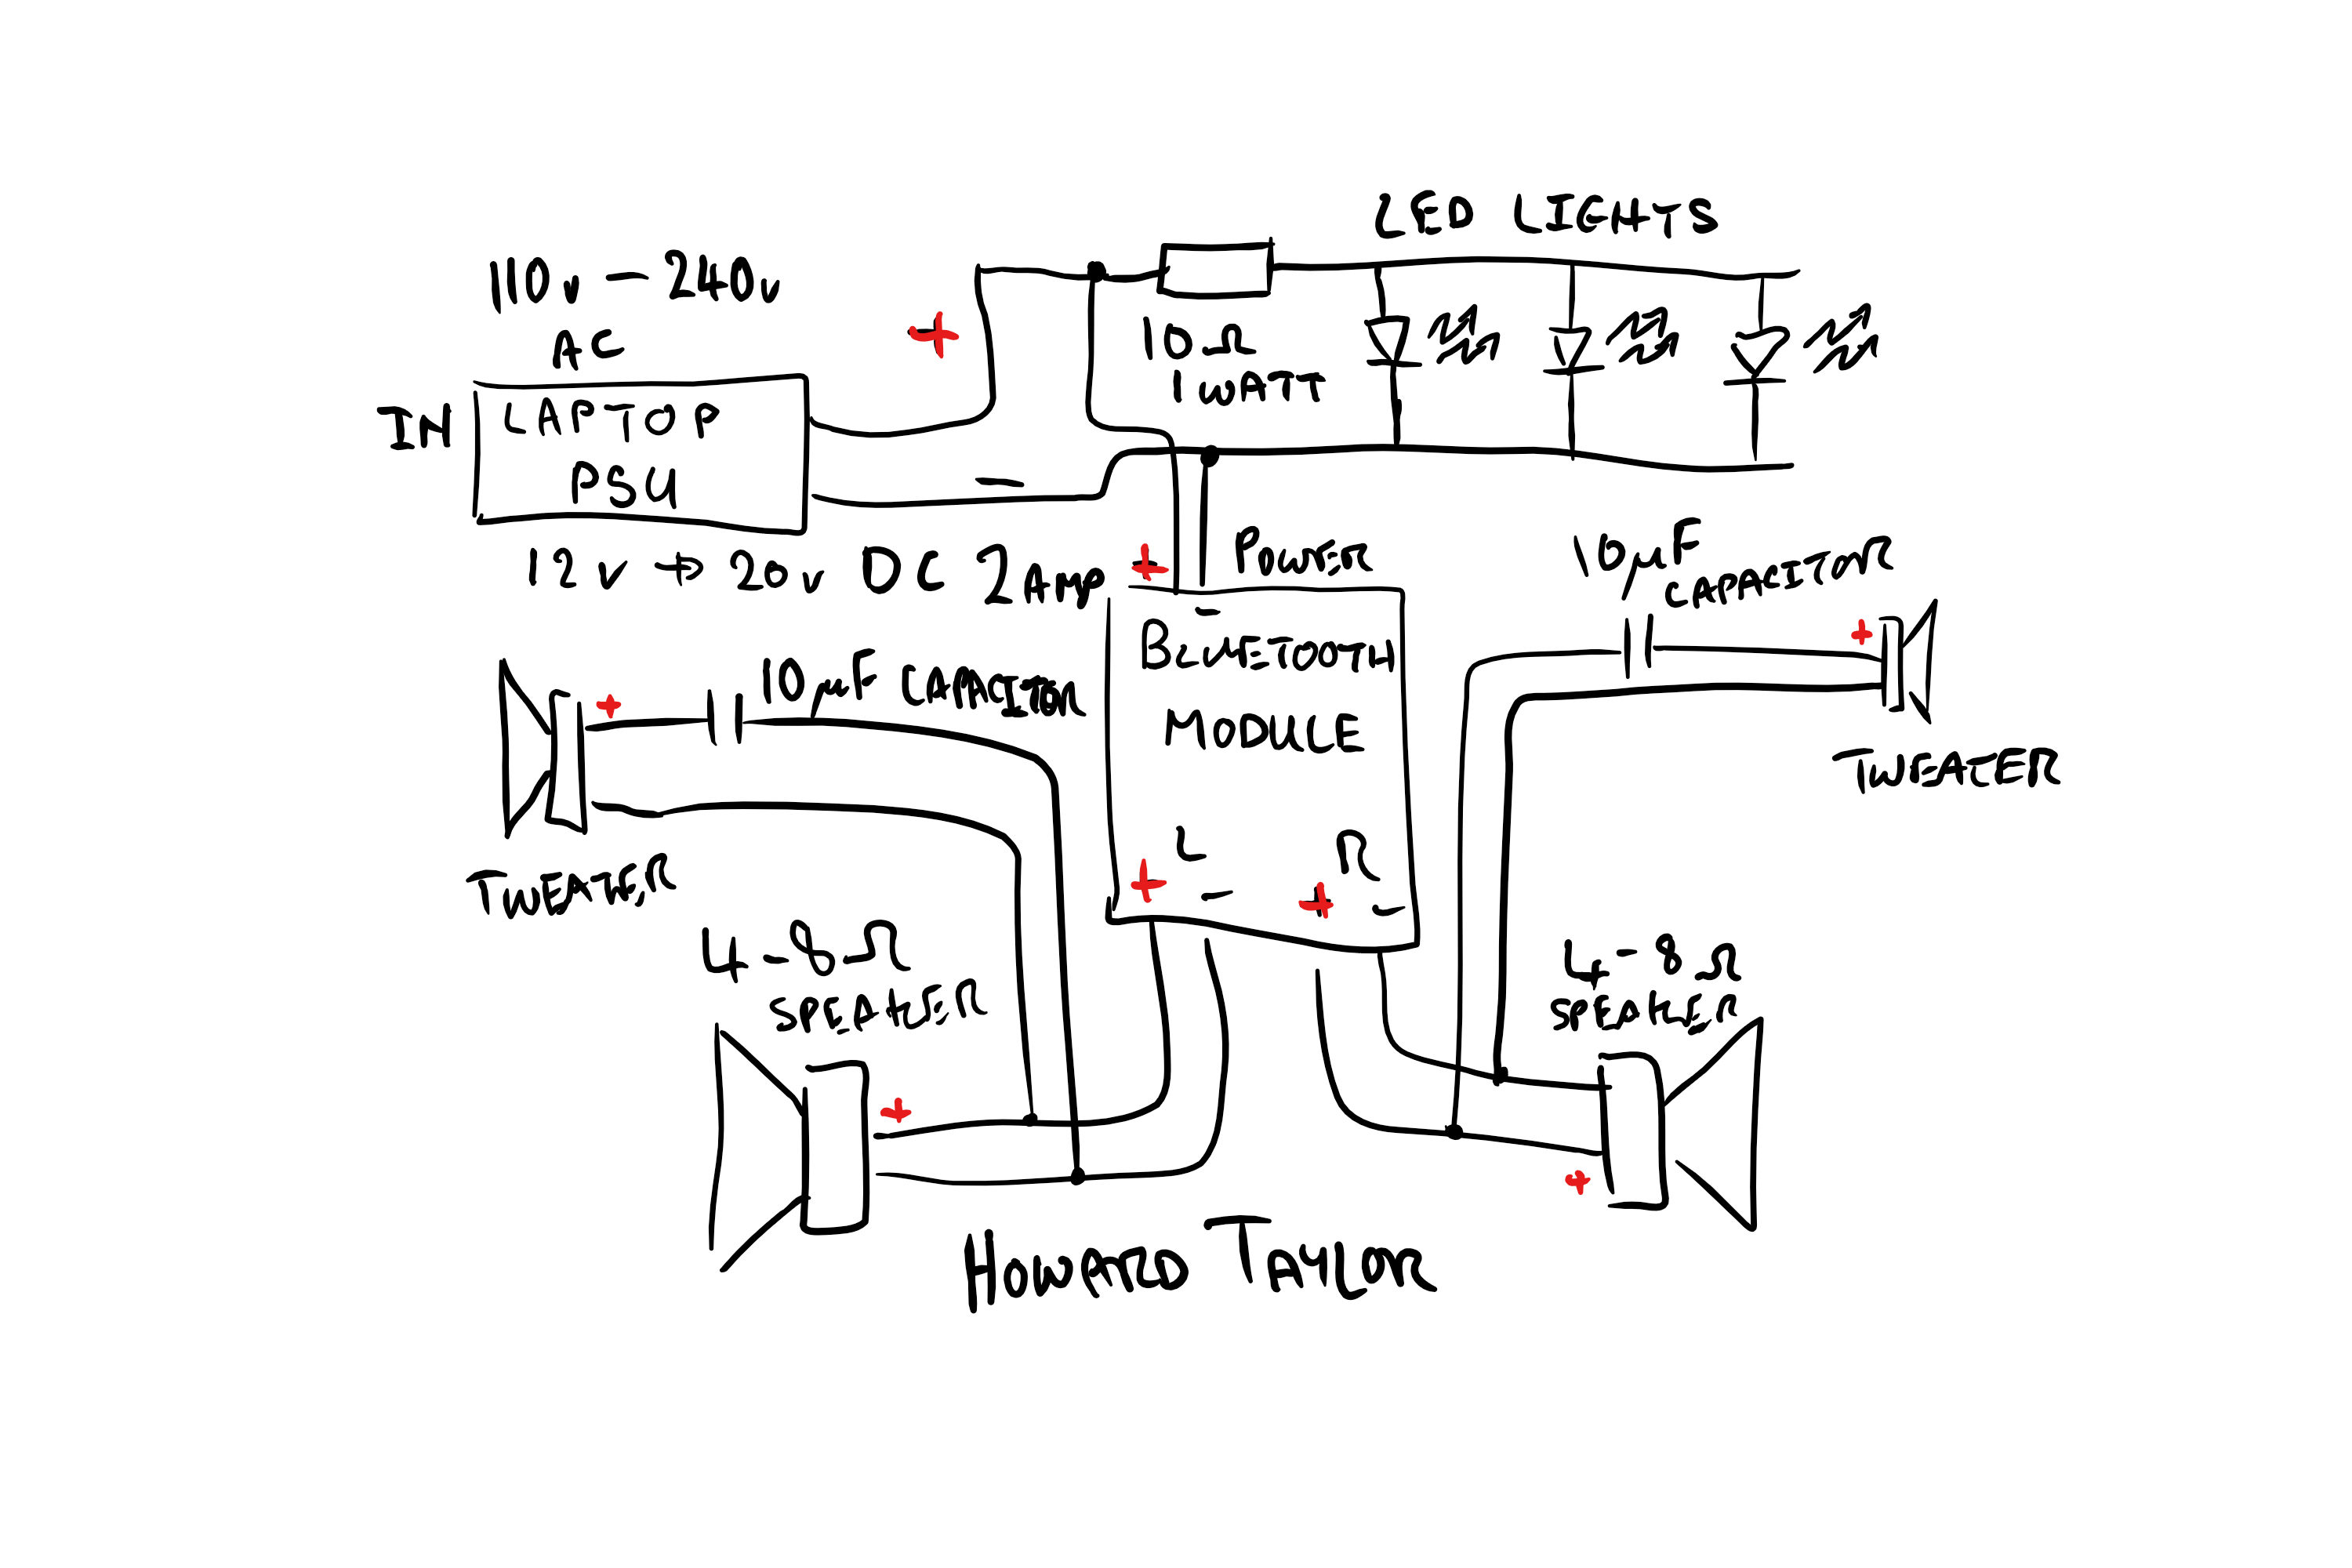 LED LIGHTS
110v - 240v
AC
+
10Ω
1 WATT
IN
LAPTOP
PSU
-
12v → 20v DC 2Amp
+
POWER
-
10µF
CAPACITOR
+
BLUETOOTH
MODULE
10µF CAPACITOR
+
TWEATER
TWEATER
L
R
+ -
+ -
4-8Ω
SPEAKER
4-8Ω
SPEAKER
+
+
HOWARD TAYLOR